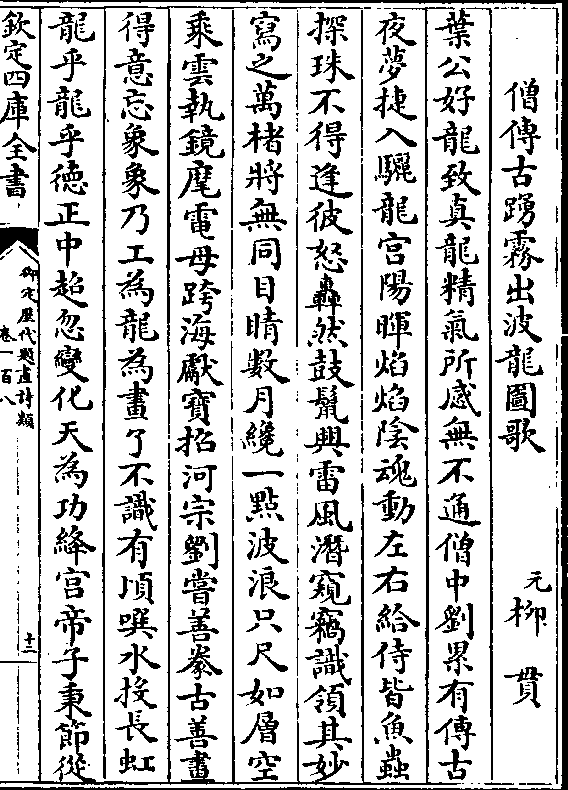 僧傳古踴霧出波龍圖歌
元柳貫
葉公好龍致真龍精氣所感無不通僧中劉累有傳古
夜夢捷入驪龍宮陽暉焰焰陰魂動左右給侍皆魚蟲
探珠不得逢彼怒轟然鼓鬣興雷風潛窺竊識領其妙
寫之萬楮將無同目睛數月纔一點波浪只尺如層空
乘雲執鏡麾電母跨海獻寶招河宗劉嘗善豢古善畫
得意忘象象乃工為龍為畫了不識有頃噀水投長虹
龍乎龍乎德正中超忽變化天為功絳宮帝子秉節從
欽定四庫全書
御定歷代題畫詩類
卷一百八
十二